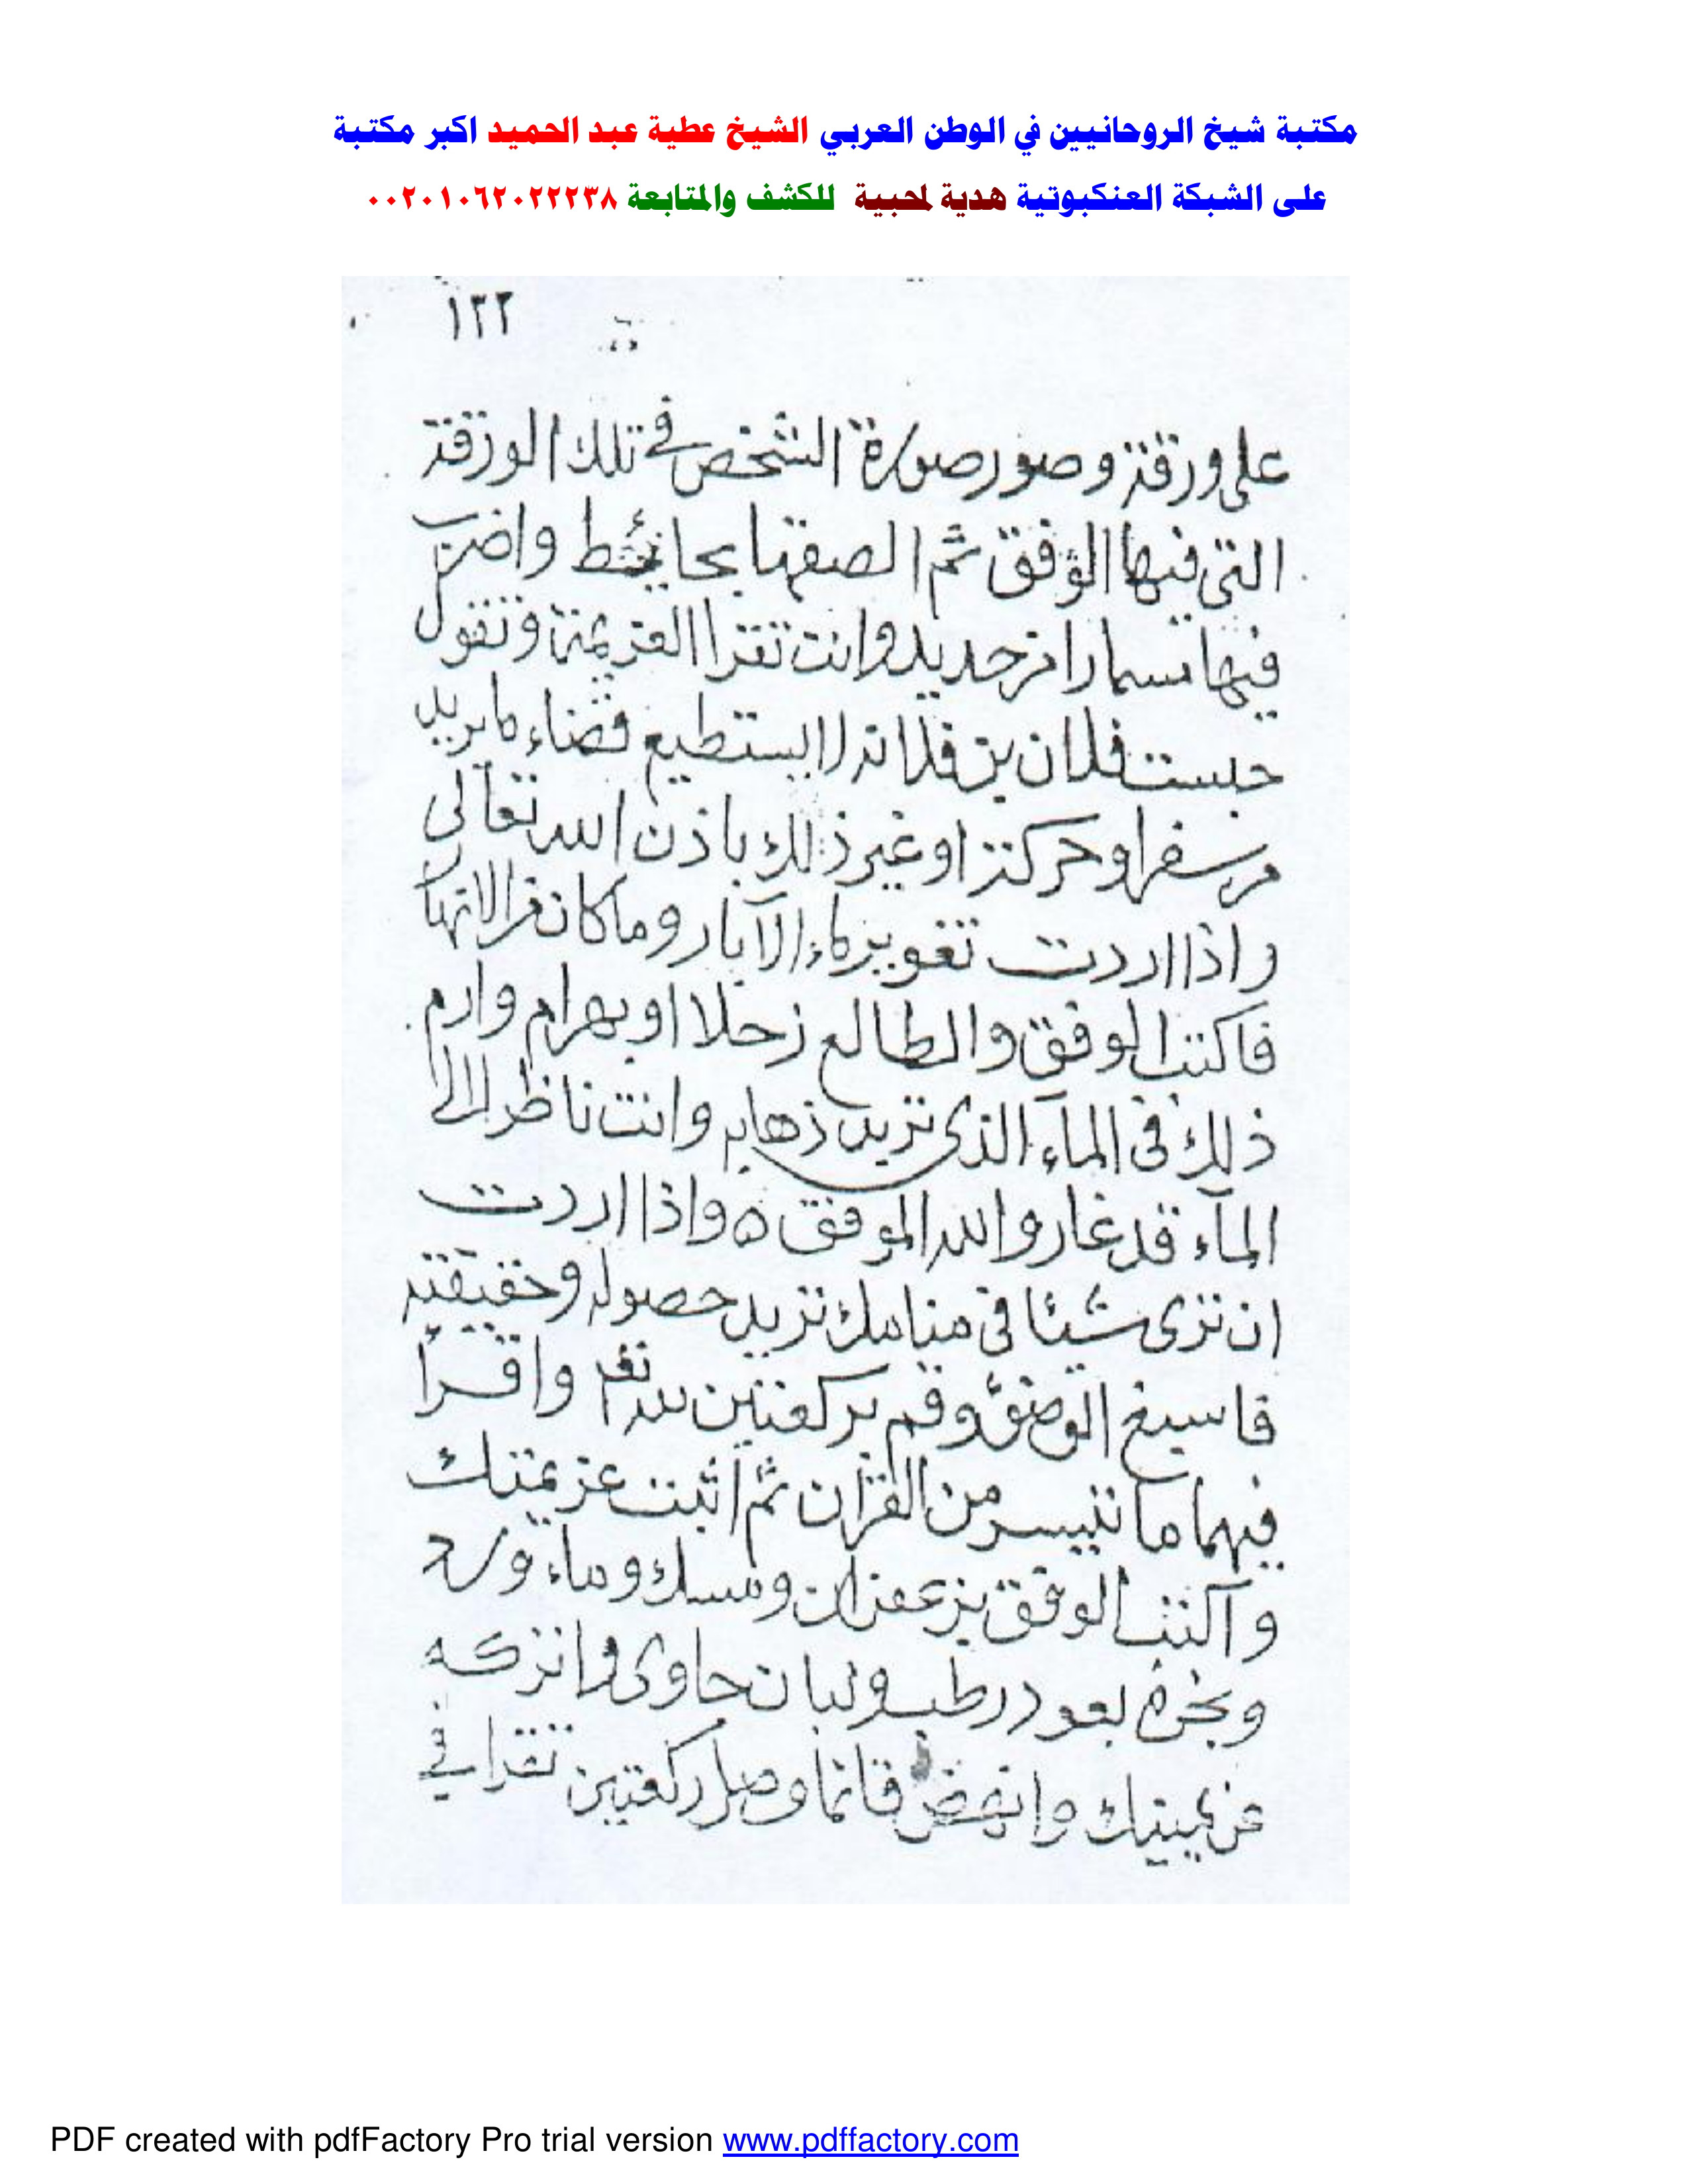 مكتبة شيخ الروحانيين في الوطن العربي الشيخ عطية عبد الحميد اكبر مكتبة
على الشبكة العنكبوتية هدية لمحبية للكشف والمتابعة ٠٠٢٠١٠٦٢٠٢٢٢٣٨
١٢٢
على ورقة وصور صورة الشخص في تلك الورقة
التي فيها الوفق ثم الصقها بحائط واضرب
فيها مسمارا من حديد وانت تقرا العزيمة وتقول
حبست فلان بن فلانة لا يستطيع قضاء ما يريد
من سفر او حركة او غير ذلك باذن الله تعالى
واذا اردت تغوير ماء الآبار وما كان من الانهار
فاكتب الوفق والطالع زحلا او بهرام وارم
ذلك في المآء الذي تريد ذهابه وانت ناظر الى
المآء قد غار والله الموفق ه واذا اردت
ان ترى شيئا في منامك تريد حصوله وحقيقته
فاسبغ الوضوء وقم بركعتين لله تع واقرأ
فيهما ما تيسر من القرآن ثم اثبت عزيمتك
واكتب الوفق بزعفران ومسك وماء ورد
وبخره بعود رطب ولبان جاوى واتركه
عن يمينك وانهض قائما وصل ركعتين تقرا في
PDF created with pdfFactory Pro trial version www.pdffactory.com